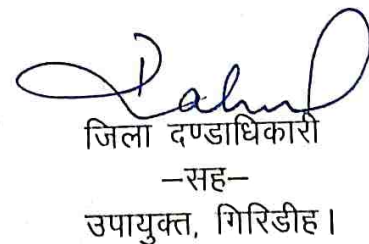 Rahul
जिला दण्डाधिकारी
–सह–
उपायुक्त, गिरिडीह।